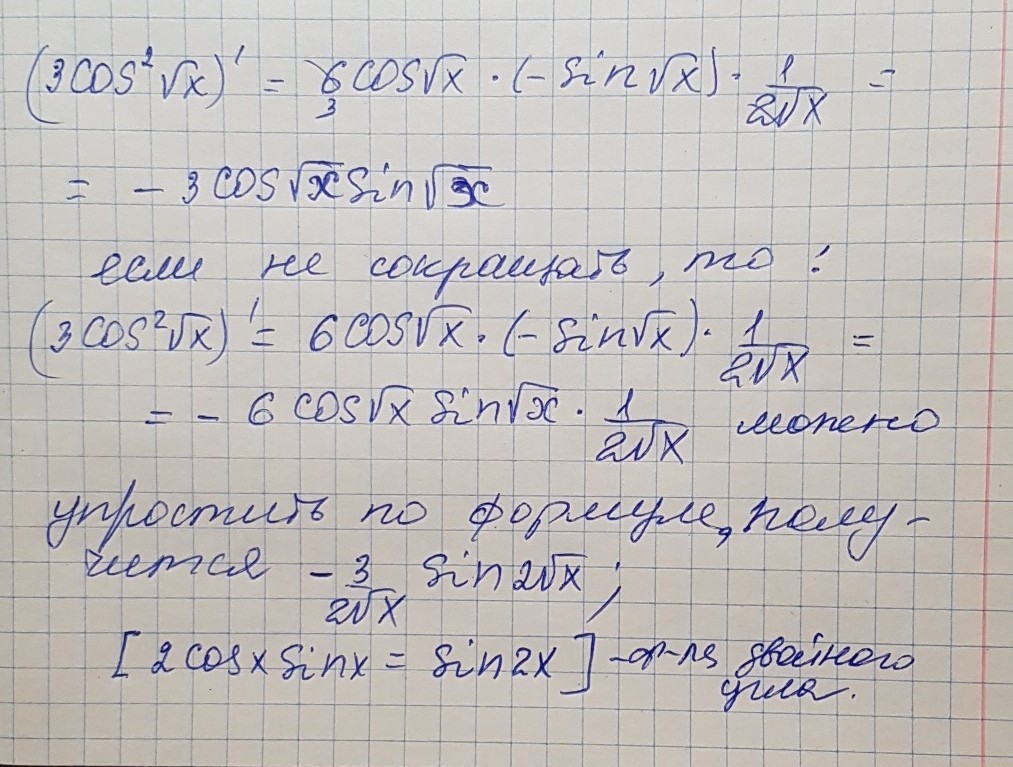 (3cos²√x)' = 6cos√x · (-sin√x) · 1/2√x =
3
= - 3cos√x sin√x
если не сокращать, то :
(3cos²√x)' = 6cos√x · (-sin√x) · 1/2√x =
= - 6cos√x sin√x · 1/2√x можно
упростить по формуле, полу-
чится - 3/2√x sin2√x ;
[2cosx sinx = sin2x] -ф-ла двойного
угла.